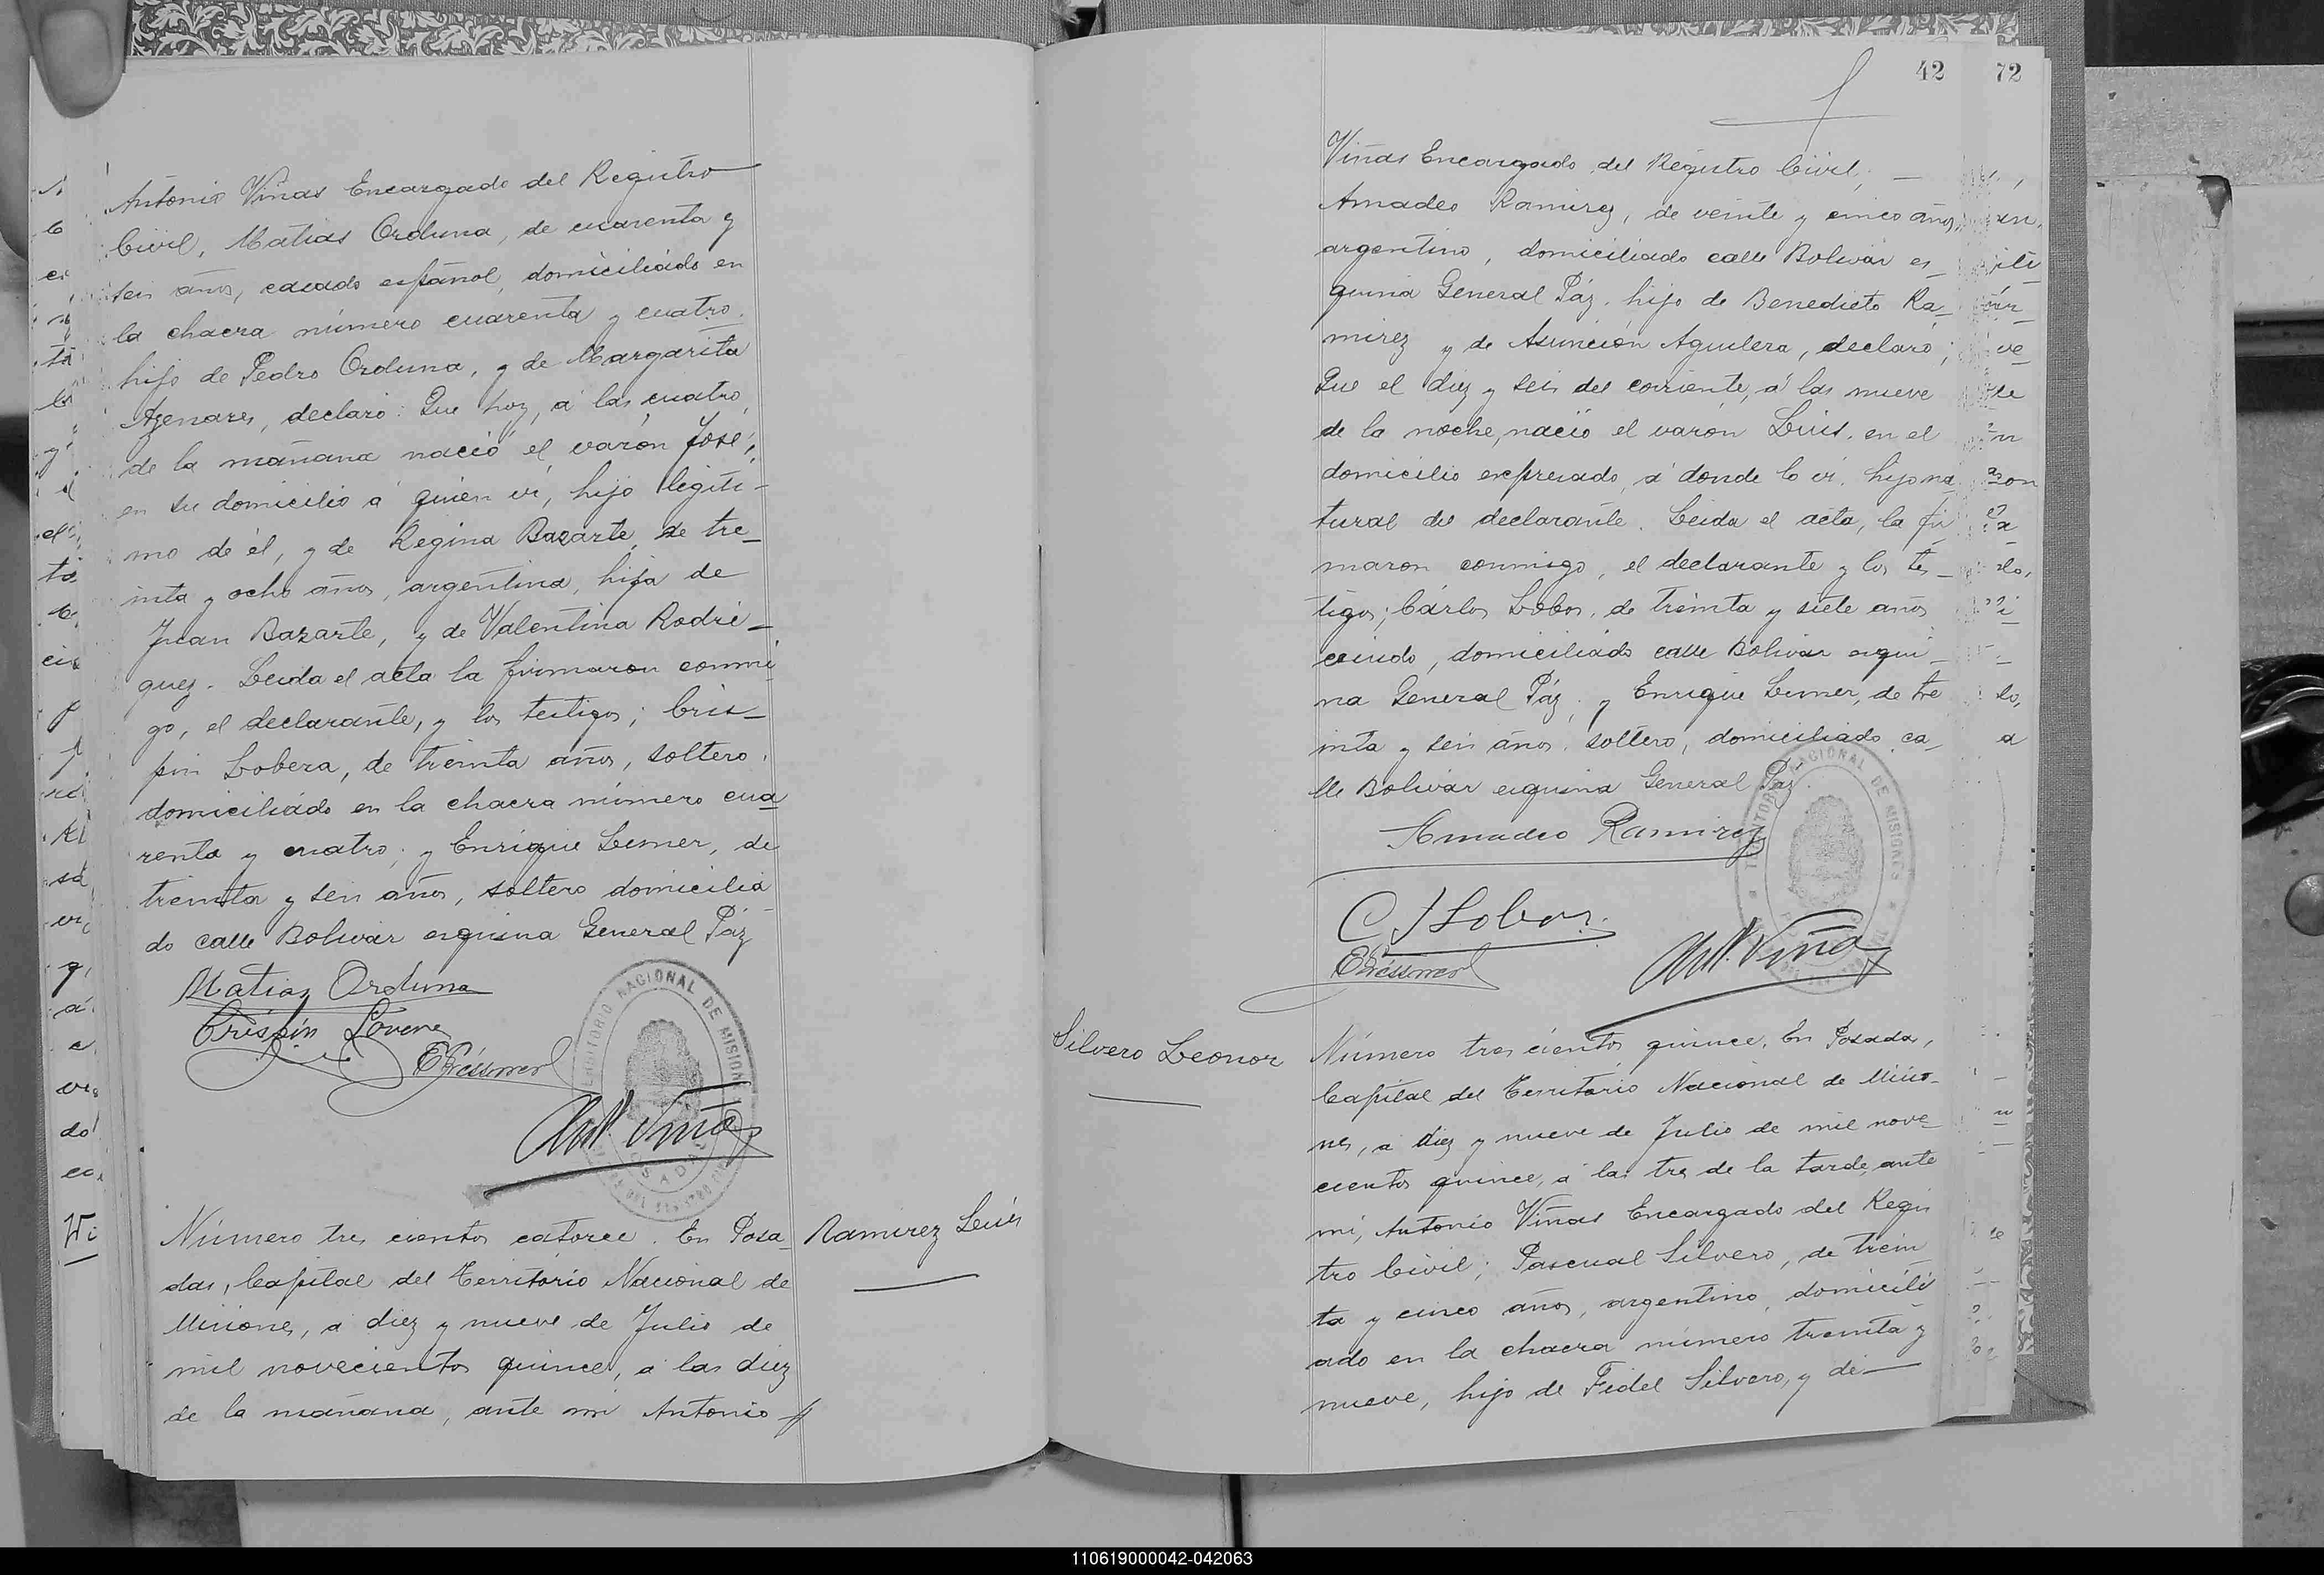 Antonio Viñas Encargado del Registro
Civil, Matias Orduna, de cuarenta y
seis años, casado español, domiciliado en
la chacra número cuarenta y cuatro.
hijo de Pedro Orduna, y de Margarita
Azenares, declaró: Que hoy, á las cuatro
de la mañana nació el varón José,
en su domicilio á quien vi, hijo legiti-
mo de él, y de Regina Bazarte, de tre-
inta y ocho años, argentina, hija de
Juan Bazarte, y de Valentina Rodri-
guez. Leida el acta la firmaron conmi
go, el declarante, y los testigos; Cris-
pin Lobera, de treinta años, soltero,
domiciliado en la chacra número cua
renta y cuatro; y Enrique Lesmer, de
treinta y seis años, soltero domicilia
do calle Bolivar esquina General Páz
Matias Orduna
Crispín Lovera
Ant. Viña
TERRITORIO NACIONAL DE MISIONES
POSADAS
Número tres cientos catorce. En Posa-
das, Capital del Territorio Nacional de
Misiones, a diez y nueve de Julio de
mil novecientos quince, a las diez
de la mañana, ante mi Antonio
Ramirez Luis
42
72
Viñas Encargado del Registro Civil;
Amadeo Ramirez, de veinte y cinco años,
argentino, domiciliado calle Bolivar es-
quina General Páz, hijo de Benedicto Ra-
mirez y de Asunción Aguilera, declaró;
Que el diez y seis del corriente, á las nueve
de la noche, nació el varon Luis, en el
domicilio expresado, á donde lo vi, hijo na
tural del declarante. Leida el acta, la fir
maron conmigo, el declarante y los tes-
tigos; Cárlos Lobos, de treinta y siete años
viudo, domiciliado calle Bolivar esqui-
na General Páz, y Enrique Lesmer, de tre
inta y seis años, soltero, domiciliado ca-
lle Bolivar esquina General Paz.
Amadeo Ramirez
C J Lobos
Ant. Viña
TERRITORIO NACIONAL DE MISIONES
Silvero Leonor
Número tres cientos quince. En Posadas,
Capital del Territorio Nacional de Misio-
nes, a diez y nueve de Julio de mil nove-
cientos quince, á las tres de la tarde, ante
mi, Antonio Viñas Encargado del Regis
tro Civil; Pascual Silvero, de trein
ta y cinco años, argentino, domicili
ado en la chacra número treinta y
nueve, hijo de Fidel Silvero, y de
110619000042-042063